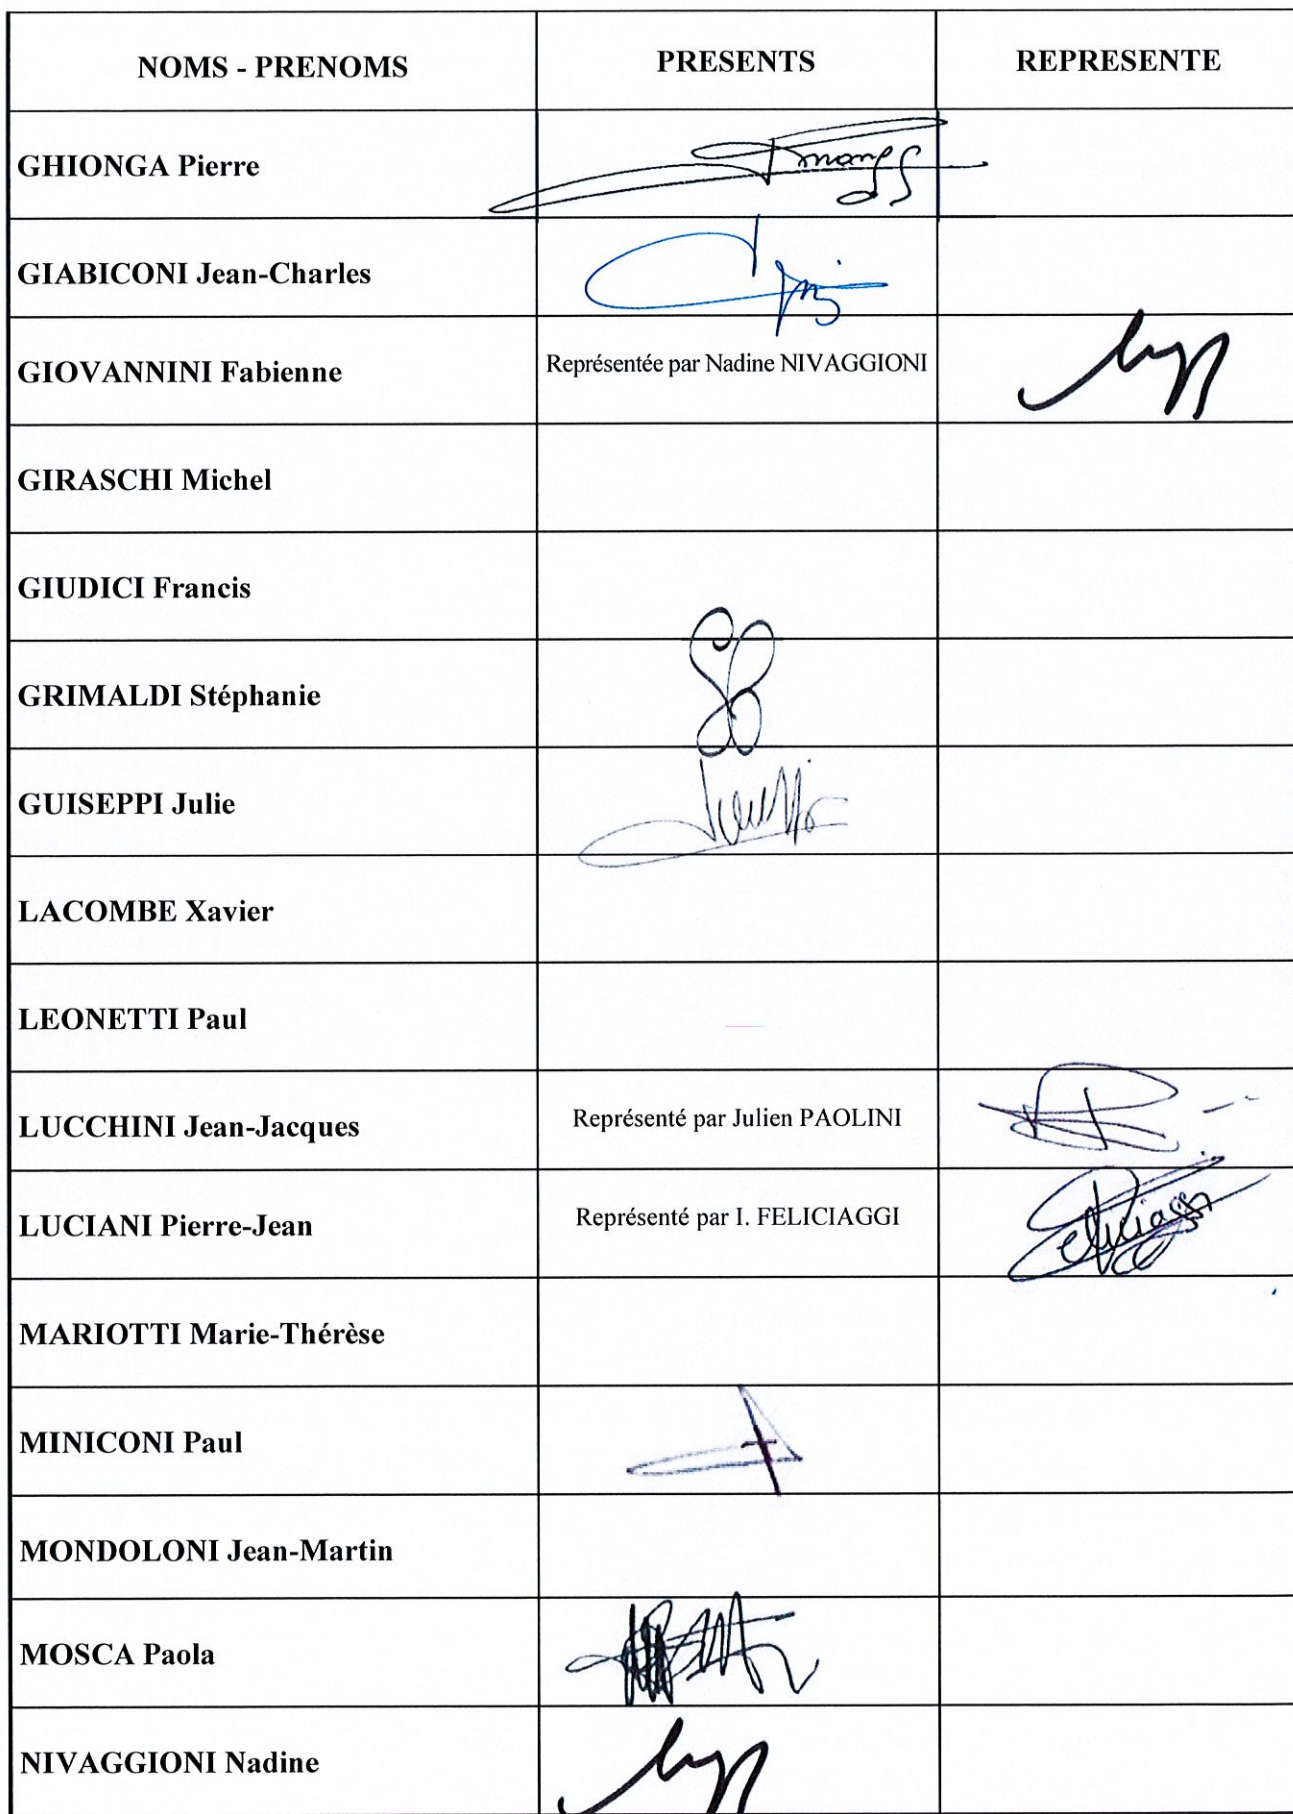 NOMS - PRENOMS PRESENTS REPRESENTE
GHIONGA Pierre
GIABICONI Jean-Charles
GIOVANNINI Fabienne Représentée par Nadine NIVAGGIONI
GIRASCHI Michel
GIUDICI Francis
GRIMALDI Stéphanie
GUISEPPI Julie
LACOMBE Xavier
LEONETTI Paul
LUCCHINI Jean-Jacques Représenté par Julien PAOLINI
LUCIANI Pierre-Jean Représenté par I. FELICIAGGI
MARIOTTI Marie-Thérèse
MINICONI Paul
MONDOLONI Jean-Martin
MOSCA Paola
NIVAGGIONI Nadine